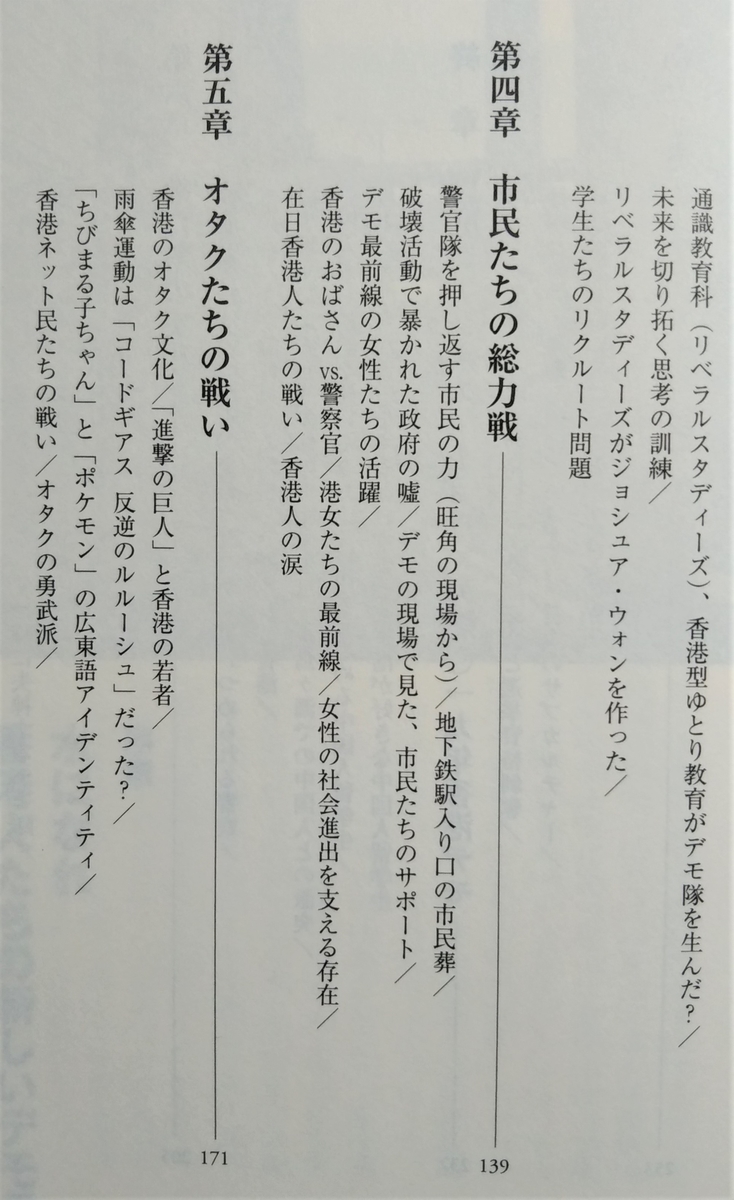 通識教育科（リベラルスタディーズ）、香港型ゆとり教育がデモ隊を生んだ？／
未来を切り拓く思考の訓練／
リベラルスタディーズがジョシュア・ウォンを作った／
学生たちのリクルート問題
第四章 市民たちの総力戦 139
警官隊を押し返す市民の力（旺角の現場から）／地下鉄駅入り口の市民葬／
破壊活動で暴かれた政府の嘘／デモの現場で見た、市民たちのサポート／
デモ最前線の女性たちの活躍／
香港のおばさん vs.警察官／港女たちの最前線／女性の社会進出を支える存在／
在日香港人たちの戦い／香港人の涙
第五章 オタクたちの戦い 171
香港のオタク文化／「進撃の巨人」と香港の若者／
雨傘運動は「コードギアス 反逆のルルーシュ」だった？／
「ちびまる子ちゃん」と「ポケモン」の広東語アイデンティティ／
香港ネット民たちの戦い／オタクの勇武派／